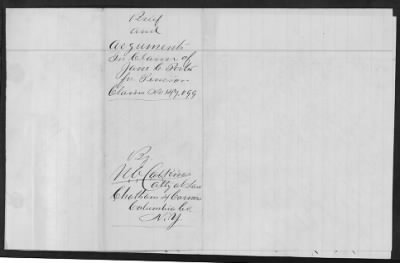 Brief
and
Argument
In Claim of
Jane C.
for Pension
Claim No 147,099
By
Atty at Law
Chatham 4 Corners
Columbia Co.
N.Y.